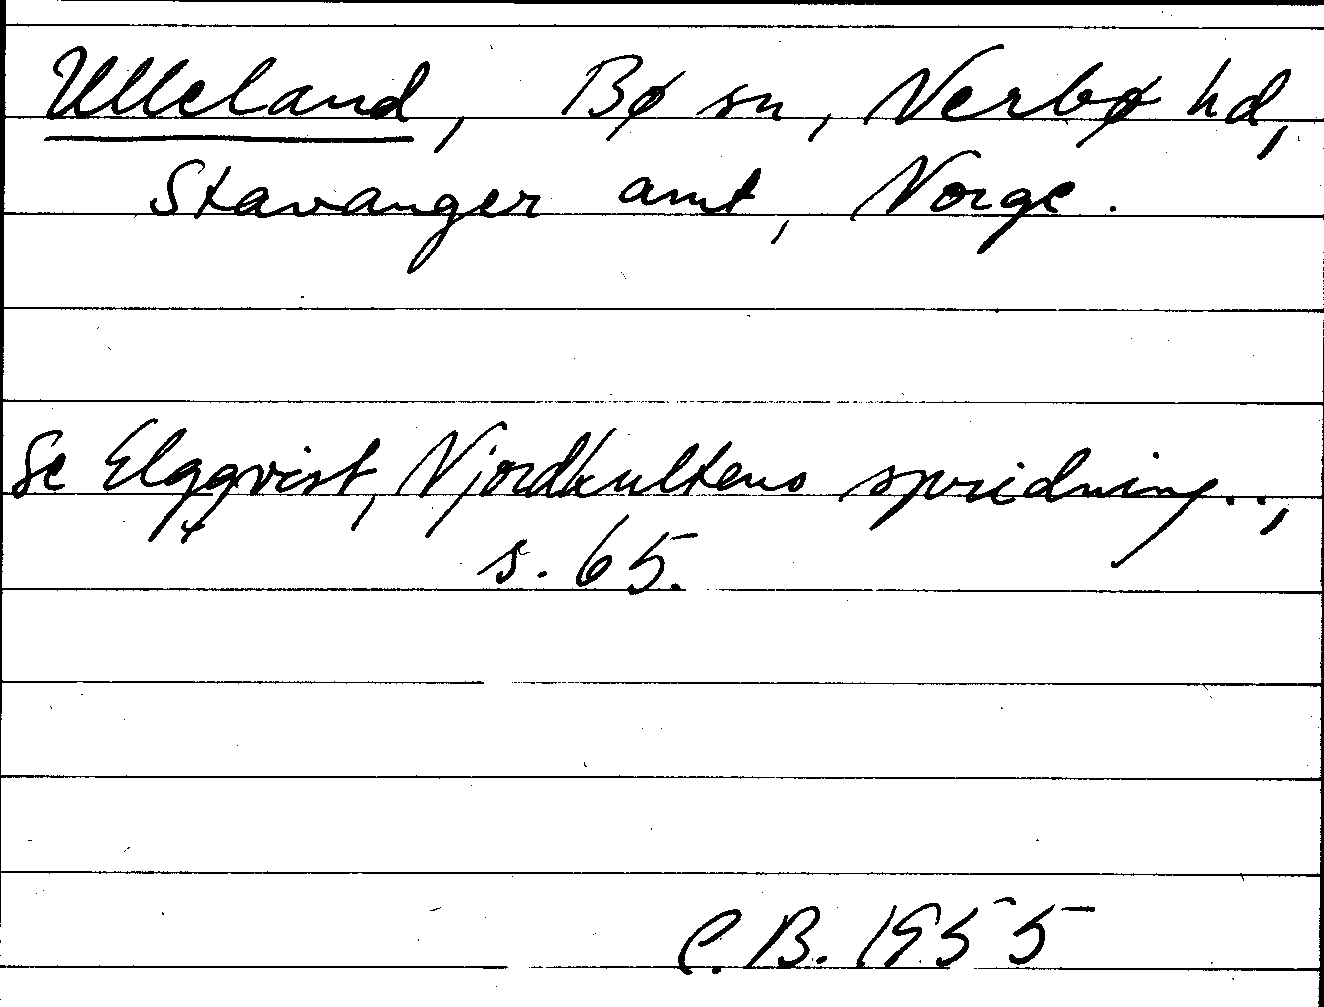 Ulleland, Bø sn, Nerbø hd,
Stavanger amt, Norge.
Se Elgqvist, Njordkultens spridning..,
s. 65.
C.B. 1955